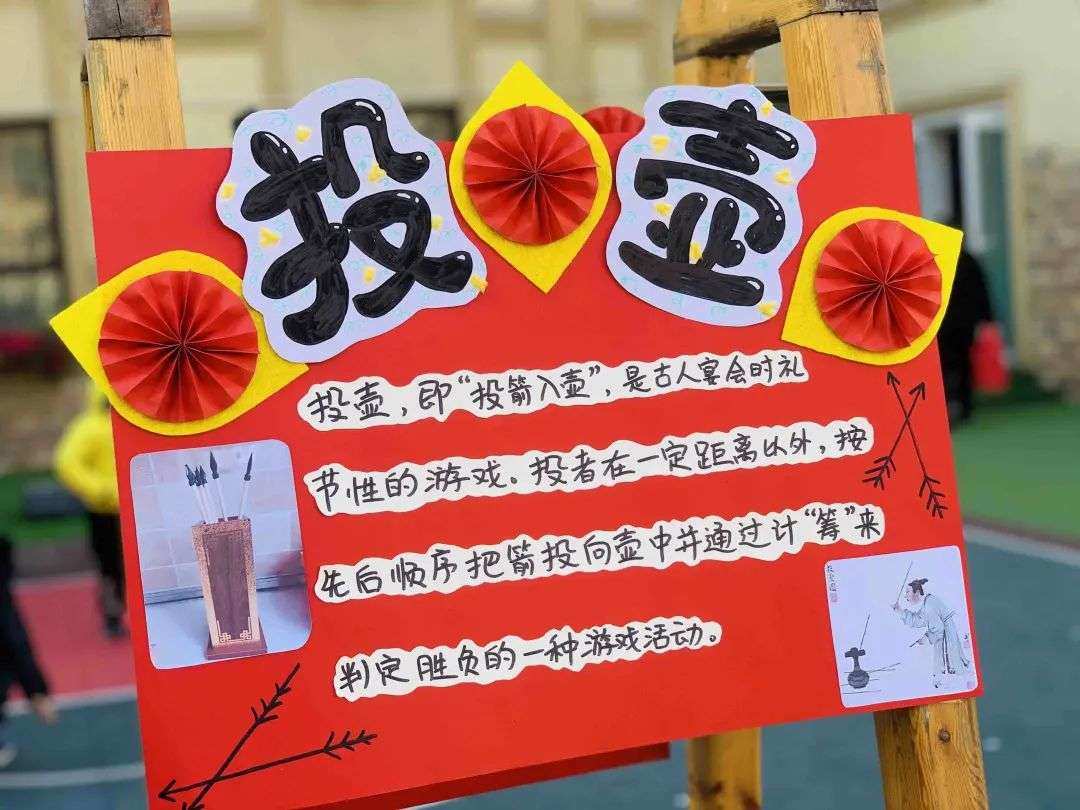 投壶
投壶，即“投箭入壶”，是古人宴会时礼
节性的游戏。投者在一定距离以外，按
先后顺序把箭投向壶中并通过计“筹”来
判定胜负的一种游戏活动。